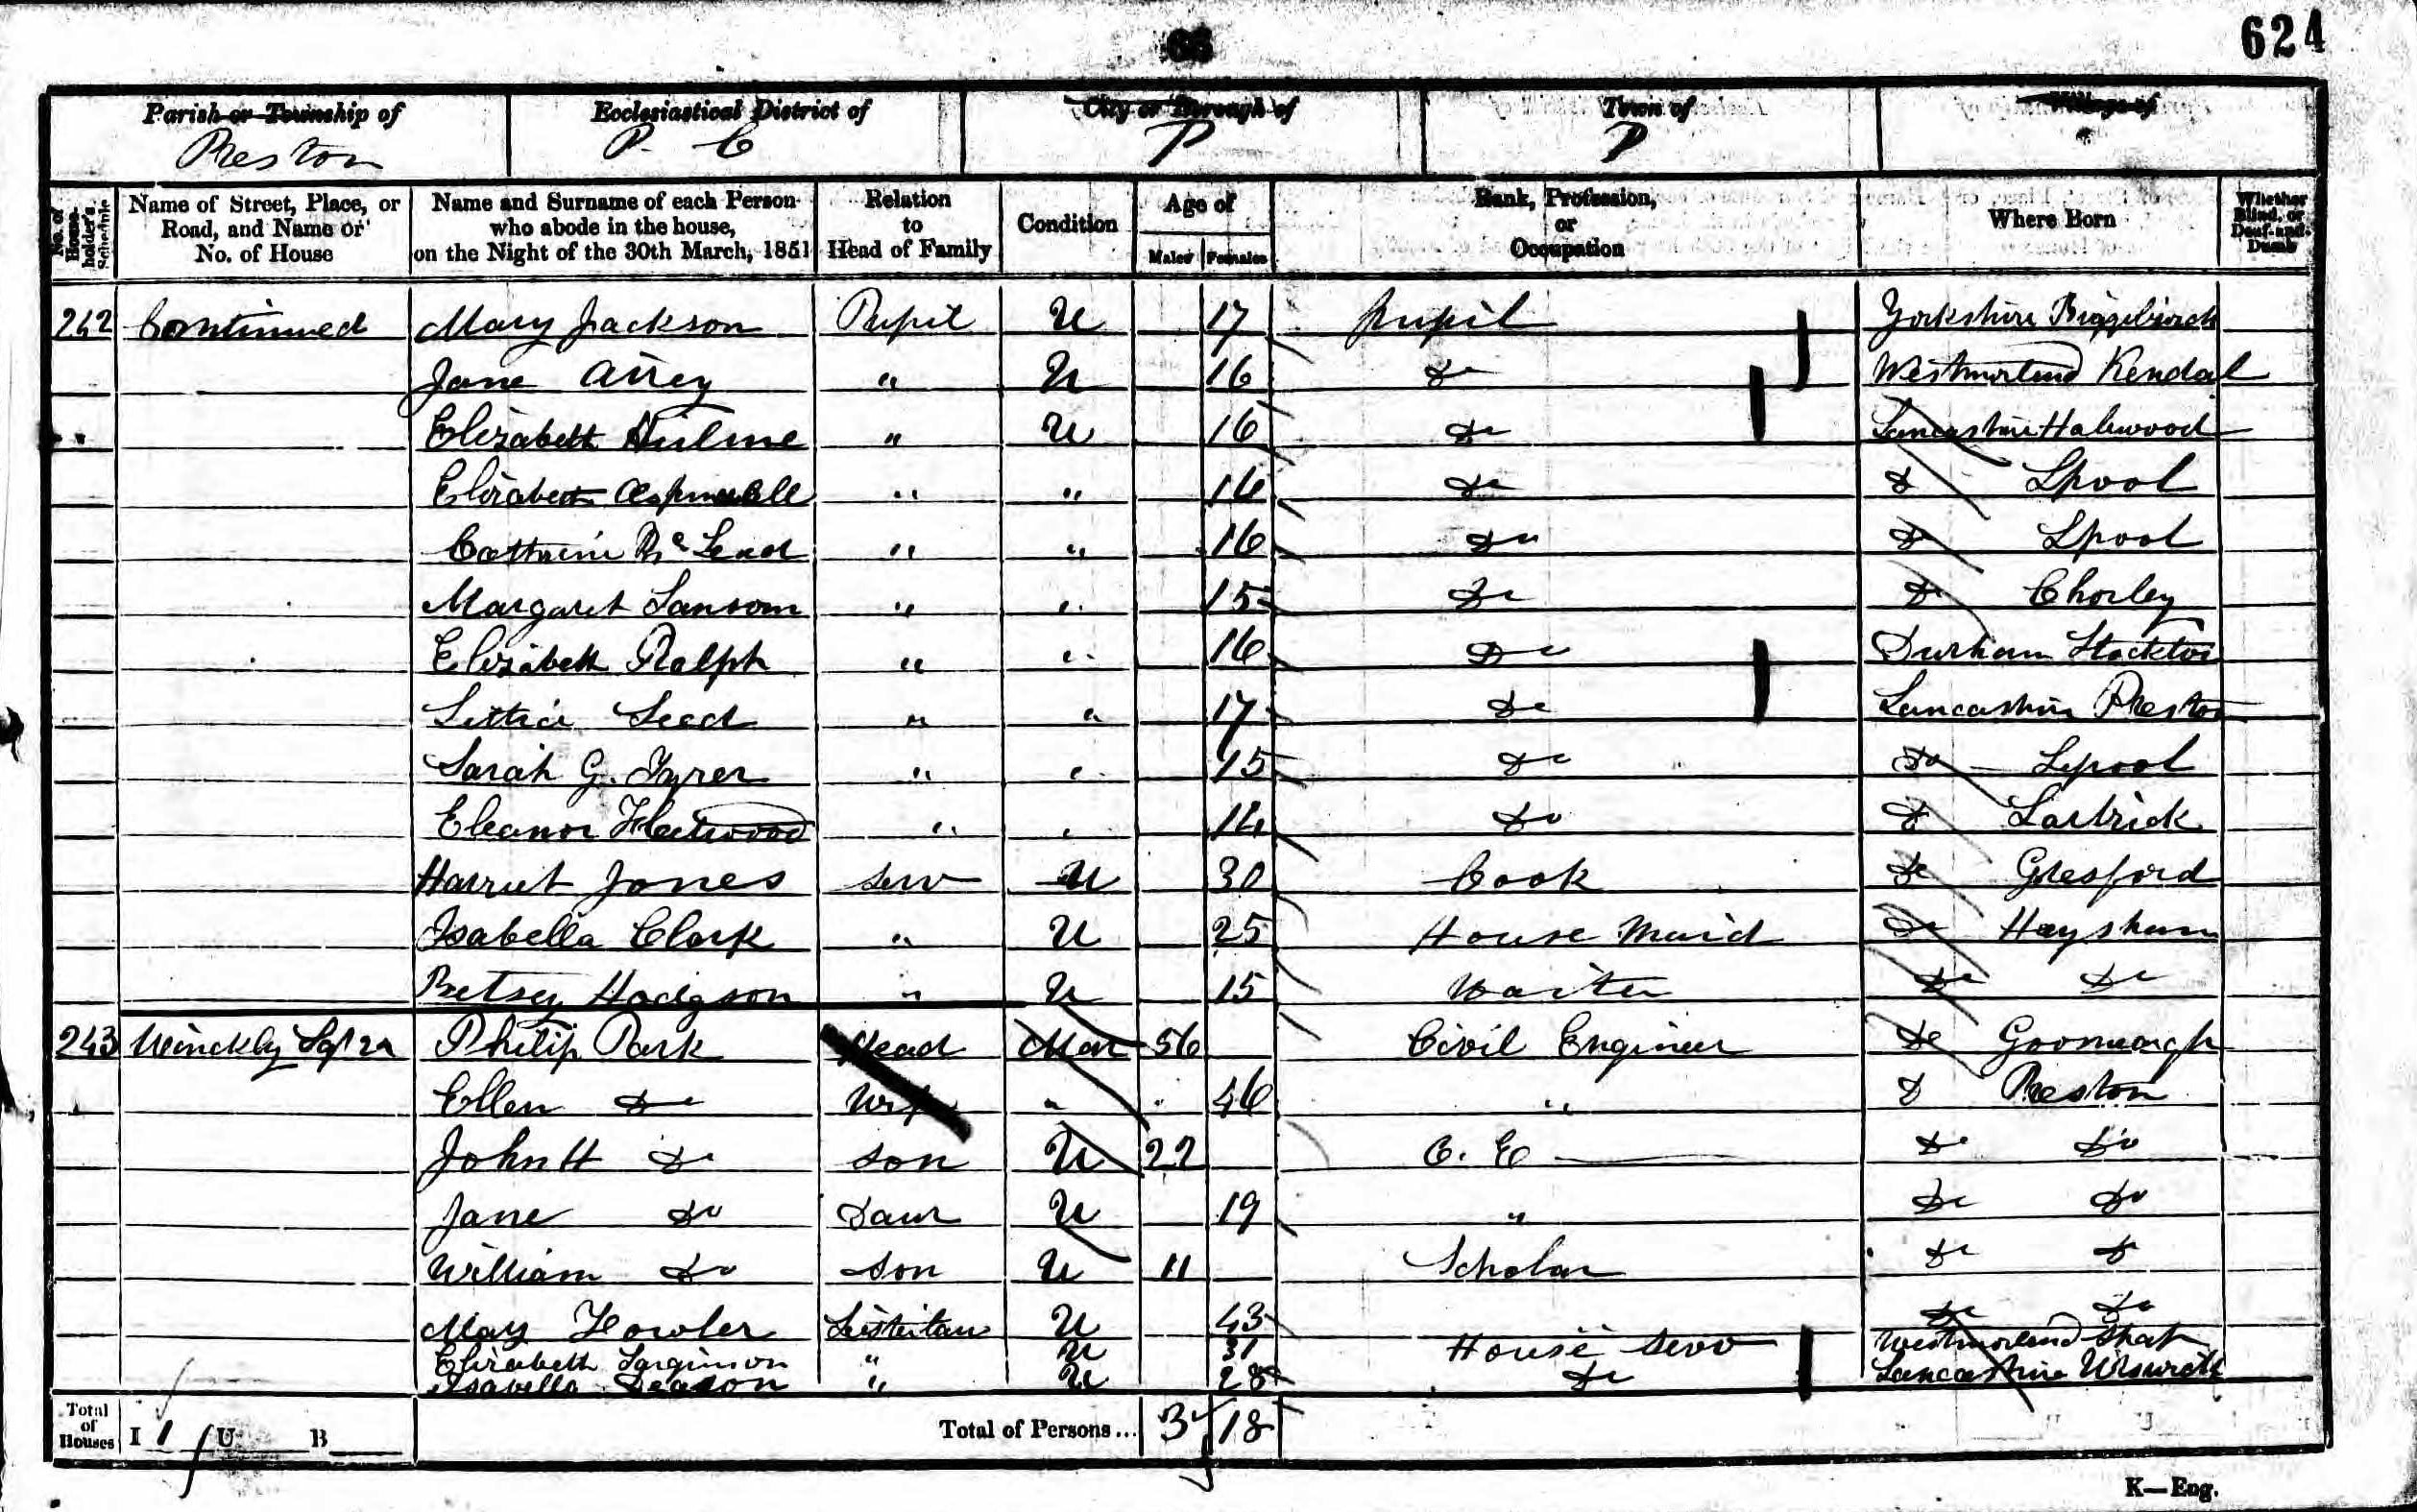 624
Parish or Township of
Preston
Ecclesiastical District of
P. C
City or Borough of
P
Town of
P
Village of
No. of House-holder's Schedule
Name of Street, Place, or Road, and Name or No. of House
Name and Surname of each Person who abode in the house, on the Night of the 30th March, 1851
Relation to Head of Family
Condition
Age of
Males Females
Rank, Profession, or Occupation
Where Born
Whether Blind, or Deaf-and-Dumb
242 Continued Mary Jackson Pupil U 17 pupil Yorkshire
Jane Airey " U 16 Do Westmorland Kendal
Elizabeth Hulme " U 16 Do Lancashire Halewood
Elizabeth Aspinwall " " 14 Do Do Lpool
Catherine Mc Leod " " 16 Do Do Lpool
Margaret Sansom " " 15 Do Do Chorley
Elizabeth Ralph " " 16 Do Durham Stockton
Lettica Seed " " 17 Do Lancashire Preston
Sarah G. Tyrer " " 15 Do Do Lpool
Eleanor Fleetwood " " 14 Do Do Lartrick
Harriet Jones Serv U 30 Cook Do Gresford
Isabella Clark " U 25 House Maid Do Haysham
Betsey Hodgson " U 15 Waiter Do Do
243 Winckly Sqr 22 Philip Park Head Mar 56 Civil Engineer Do Goosnargh
Ellen Do Wife " 46 " Do Preston
John H Do Son U 22 C. E Do Do
Jane Do Daur U 19 " Do Do
William Do Son U 11 Scholar Do Do
Mary Fowler U 43 Do Do
Elizabeth " U 31 House Serv Westmorland Shap
Isabella Deason " U 28 Do Lancashire Urswick
Total of Houses I 1 U B
Total of Persons... 3 18
K—Eng.